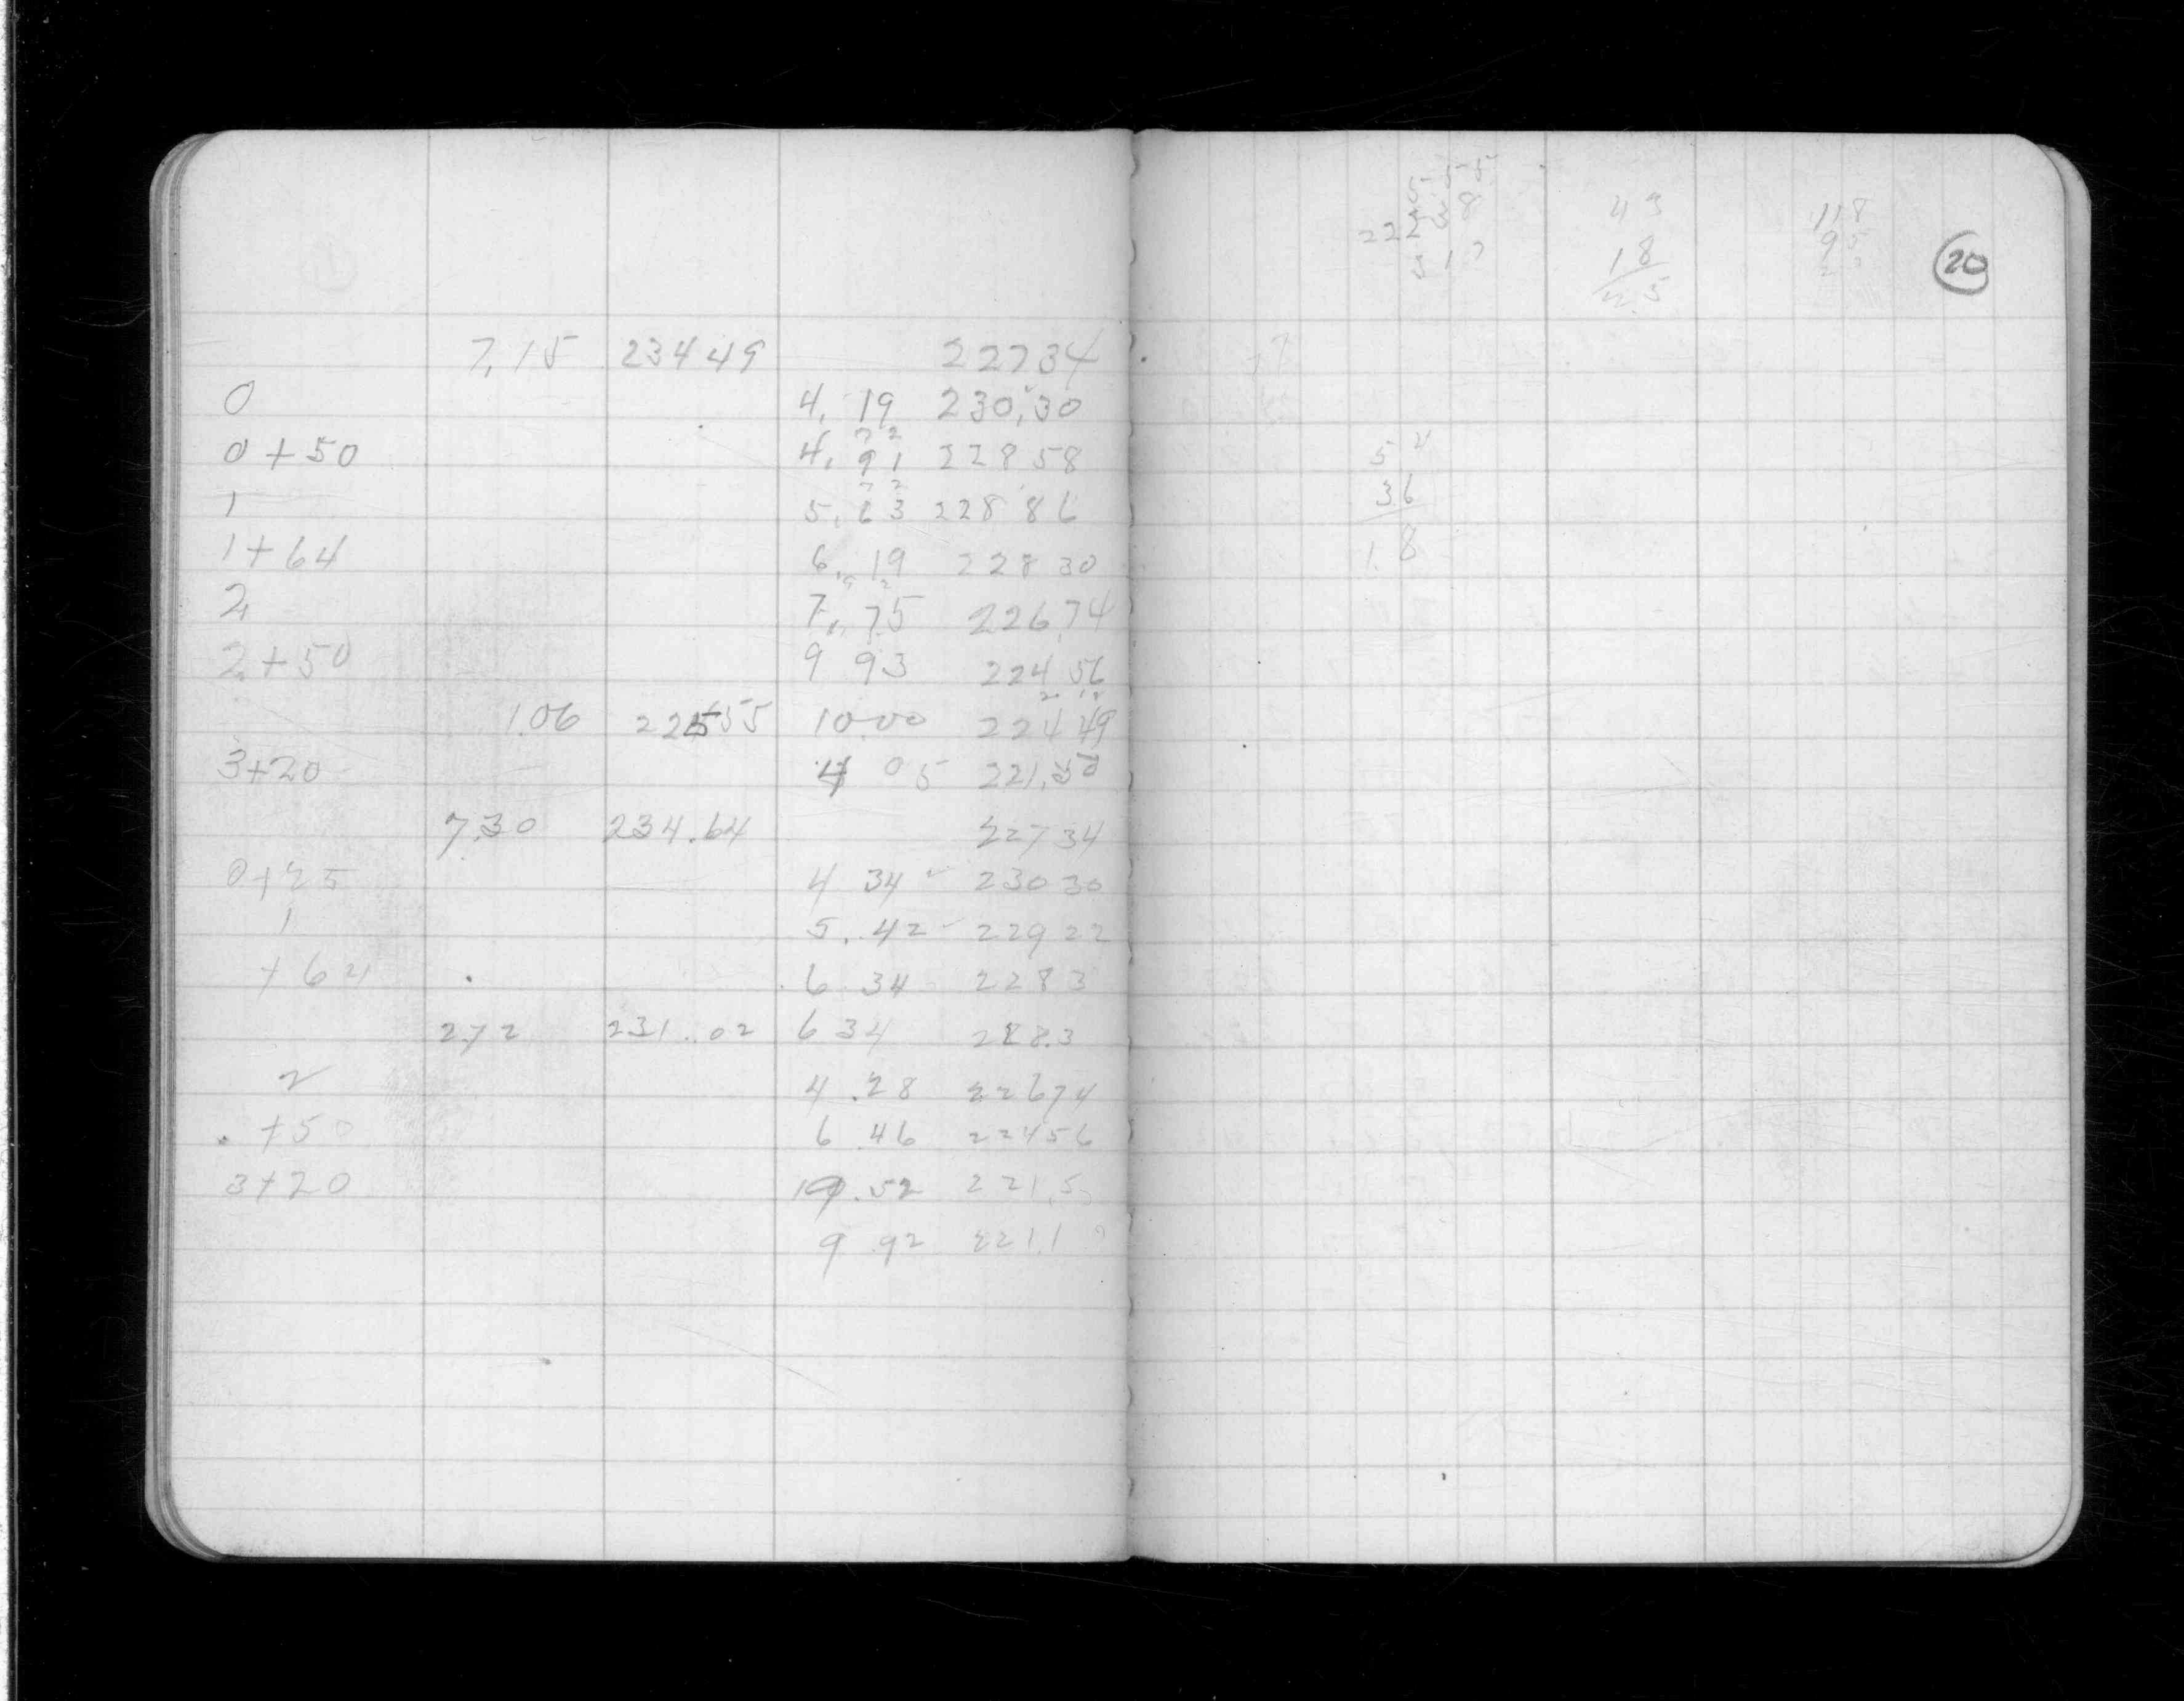 7.15 234 49 227 34
0 4. 19 230.30
7 2
0 + 50 4. 91 228 58
7 2
1 5. 63 228 86
1 + 64 6. 19 228 30
2 7. 75 226.74
2 + 50 9 93 224 56
1.06 225 55 10.00 224 49
3+20 4 05 221.50
7.30 234.64 227 34
0+25 4 34 230 30
1 5. 42 229 22
+ 64 6 34 228 3
2.72 231.02 6 34 228.3
2 4.28 226 74
+50 6 46 224 56
3+20 9.52 221.5
9 92 221.1
20
5 55
222 38
43
18
25
118
95
5 4
36
1 8